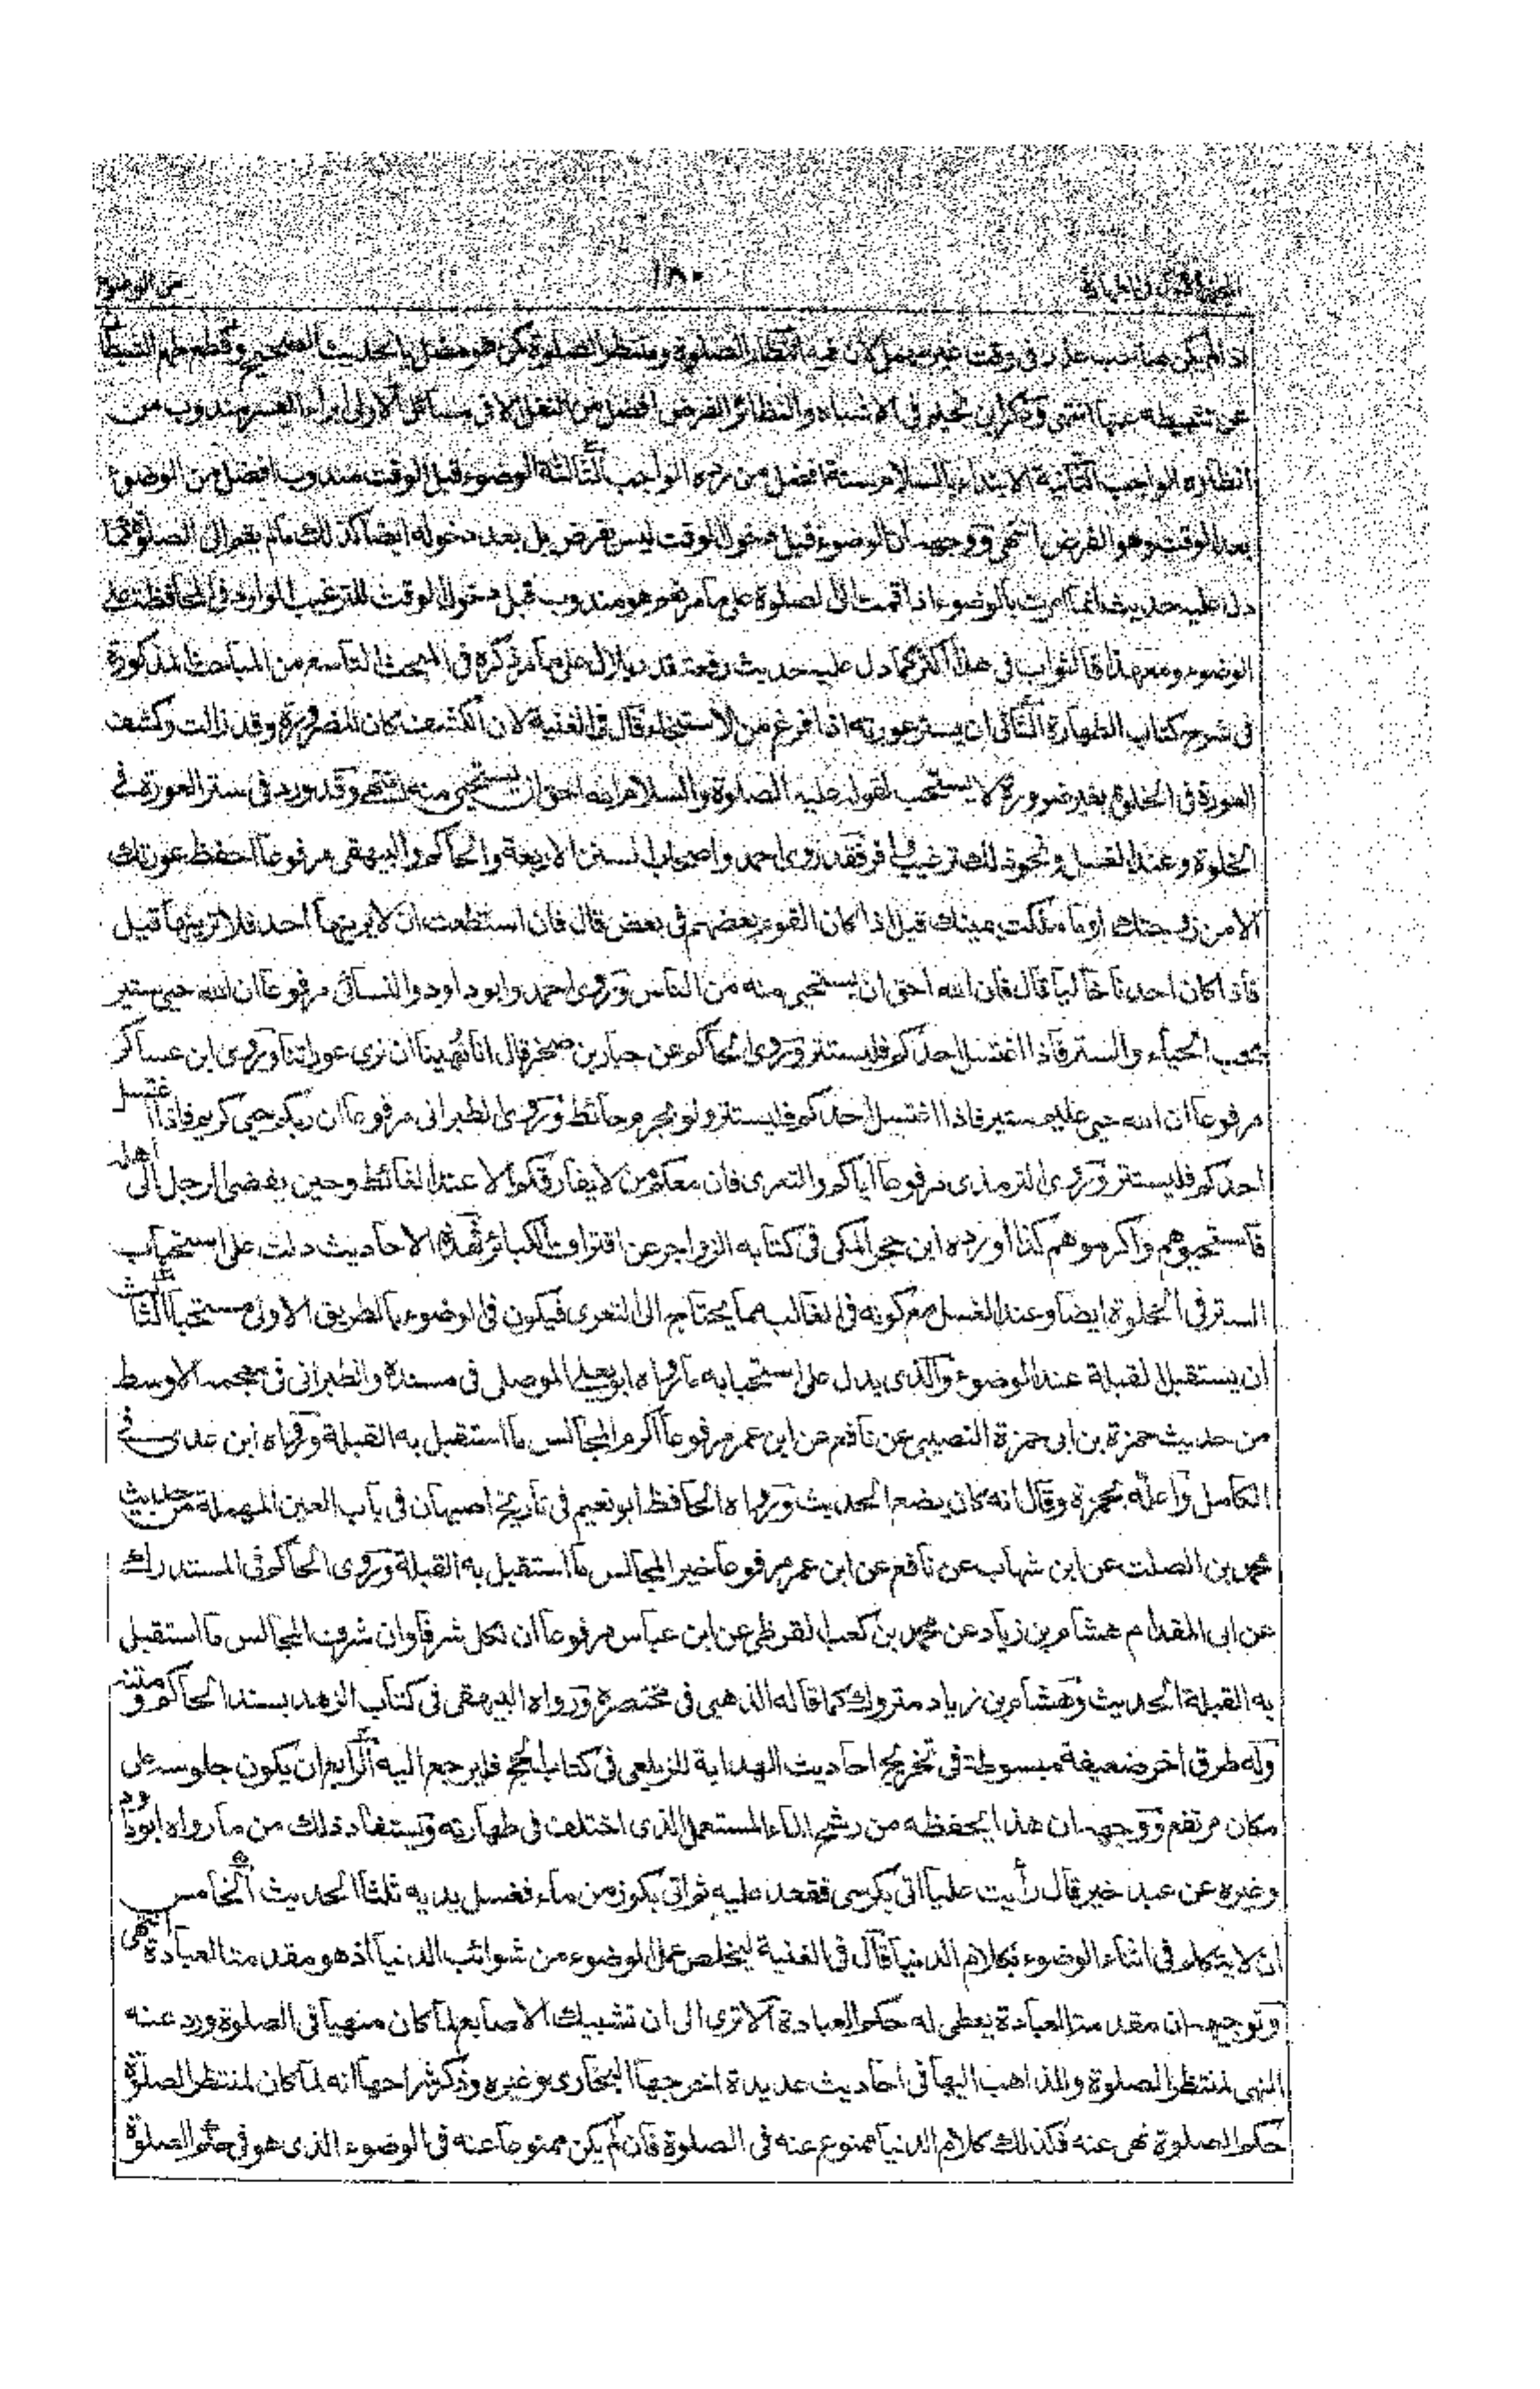 ١٨٠
اذا لم يكن صاحب عذر فى وقت غير مهمل لان فيه انتظار الصلوة ومنتظر الصلوة كمن هو مصل بالحديث الصحيح وقطع طمع الشيطان
عن تثبيطه عنها انتهى وذكر ابن نجيم فى الاشباه والنظائر الفرض افضل من النفل الا فى مسائل الاولى ابراء المعسر مندوب من
انظاره الواجب الثانية الابتداء بالسلام سنة افضل من رده الواجب الثالثة الوضوء قبل الوقت مندوب افضل من الوضوء
بعد الوقت وهو الفرض انتهى ووجهه ان الوضوء قبل دخول الوقت ليس بفرض بل بعد دخوله ايضا كذلك مالم يقم الى الصلوة كما
دل عليه حديث انما امرت بالوضوء اذا قمت الى الصلوة على ما مر نعم هو مندوب قبل دخول الوقت للترغيب الوارد فى المحافظة على
الوضوء ومع هذا فالثواب فى هذا اكثر كما دل عليه حديث رفعة قدر بلال على ما مر ذكره فى المبحث التاسع من المباحث المذكورة
فى شرح كتاب الطهارة الثانى ان يستر عورته اذا فرغ من الاستنجاء قال فى الغنية لان الكشف كان للضرورة وقد زالت وكشف
العورة فى الخلوة بغير ضرورة لا يستحب لقوله عليه الصلوة والسلام الله احق ان يستحيى منه انتهى وقد ورد فى ستر العورة فى
الخلوة وعند الغسل ونحو ذلك ترغيب وافر فقد روى احمد واصحاب السنن الاربعة والحاكم والبيهقى مرفوعا احفظ عورتك
الا من زوجتك او ما ملكت يمينك قيل اذا كان القوم بعضهم فى بعض قال فان استطعت ان لا يرينها احد فلا ترينها قيل
فاذا كان احدنا خاليا قال فان الله احق ان يستحيى منه من الناس وروى احمد وابو داود والنسائى مرفوعا ان الله حيى ستير
يحب الحياء والستر فاذا اغتسل احدكم فليستتر وروى الحاكم عن جبار بن صخر قال انا نهينا ان نرى عوراتنا وروى ابن عساكر
مرفوعا ان الله حيى عليم ستير فاذا اغتسل احدكم فليستتر ولو بجرم حائط وروى الطبرانى مرفوعا ان ربكم حيى كريم فاذا اغتسل
احدكم فليستتر وروى الترمذى مرفوعا اياكم والتعرى فان معكم من لا يفارقكم الا عند الغائط وحين يفضى الرجل الى اهله
فاستحيوهم واكرموهم كذا اورده ابن حجر المكى فى كتابه الزواجر عن اقتراف الكبائر فهذه الاحاديث دلت على استحباب
الستر فى الخلوة ايضا وعند الغسل مع كونه فى الغالب مما يحتاج الى التعرى فيكون فى الوضوء بالطريق الاولى مستحبا الثالث
ان يستقبل القبلة عند الوضوء والذى يدل على استحبابه ما رواه ابو يعلى الموصلى فى مسنده والطبرانى فى معجمه الاوسط
من حديث حمزة بن ابى حمزة النصيبى عن نافع عن ابن عمر مرفوعا اكرم المجالس ما استقبل به القبلة ورواه ابن عدى فى
الكامل واعله بحمزة وقال انه كان يضع الحديث ورواه الحافظ ابو نعيم فى تاريخ اصبهان فى باب العين المهملة من حديث
محمد بن الصلت عن ابن شهاب عن نافع عن ابن عمر مرفوعا خير المجالس ما استقبل به القبلة وروى الحاكم فى المستدرك
عن ابى المقدام هشام بن زياد عن محمد بن كعب القرظى عن ابن عباس مرفوعا ان لكل شرفا وان شرف المجالس ما استقبل
به القبلة الحديث وهشام بن زياد متروك كما قاله الذهبى فى مختصره ورواه البيهقى فى كتاب الزهد بسند الحاكم ومتنه
وله طرق اخر ضعيفة مبسوطة فى تخريج احاديث الهداية للزيلعى فى كتاب الحج فليرجع اليه الرابع ان يكون جلوسه على
مكان مرتفع ووجهه ان هذا يحفظه من رشح الماء المستعمل الذى اختلف فى طهارته ويستفاد ذلك من ما رواه ابو داود
وغيره عن عبد خير قال رأيت عليا اتى بكرسى فقعد عليه ثم اتى بكوز من ماء فغسل يديه ثلثا الحديث الخامس
ان لا يتكلم فى اثناء الوضوء بكلام الدنيا قال فى الغنية ليخلص عمل الوضوء من شوائب الدنيا اذ هو مقدمة العبادة انتهى
وتوجيهه ان مقدمة العبادة يعطى له حكم العبادة الا ترى الى ان تشبيك الاصابع لما كان منهيا فى الصلوة ورد عنه
النهى لمنتظر الصلوة والذاهب اليها فى احاديث عديدة اخرجها البخارى وغيره وذكر شراحها انه لما كان لمنتظر الصلوة
حكم الصلوة نهى عنه فكذلك كلام الدنيا ممنوع عنه فى الصلوة فان لم يكن ممنوعا عنه فى الوضوء الذى هو فى حكم الصلوة